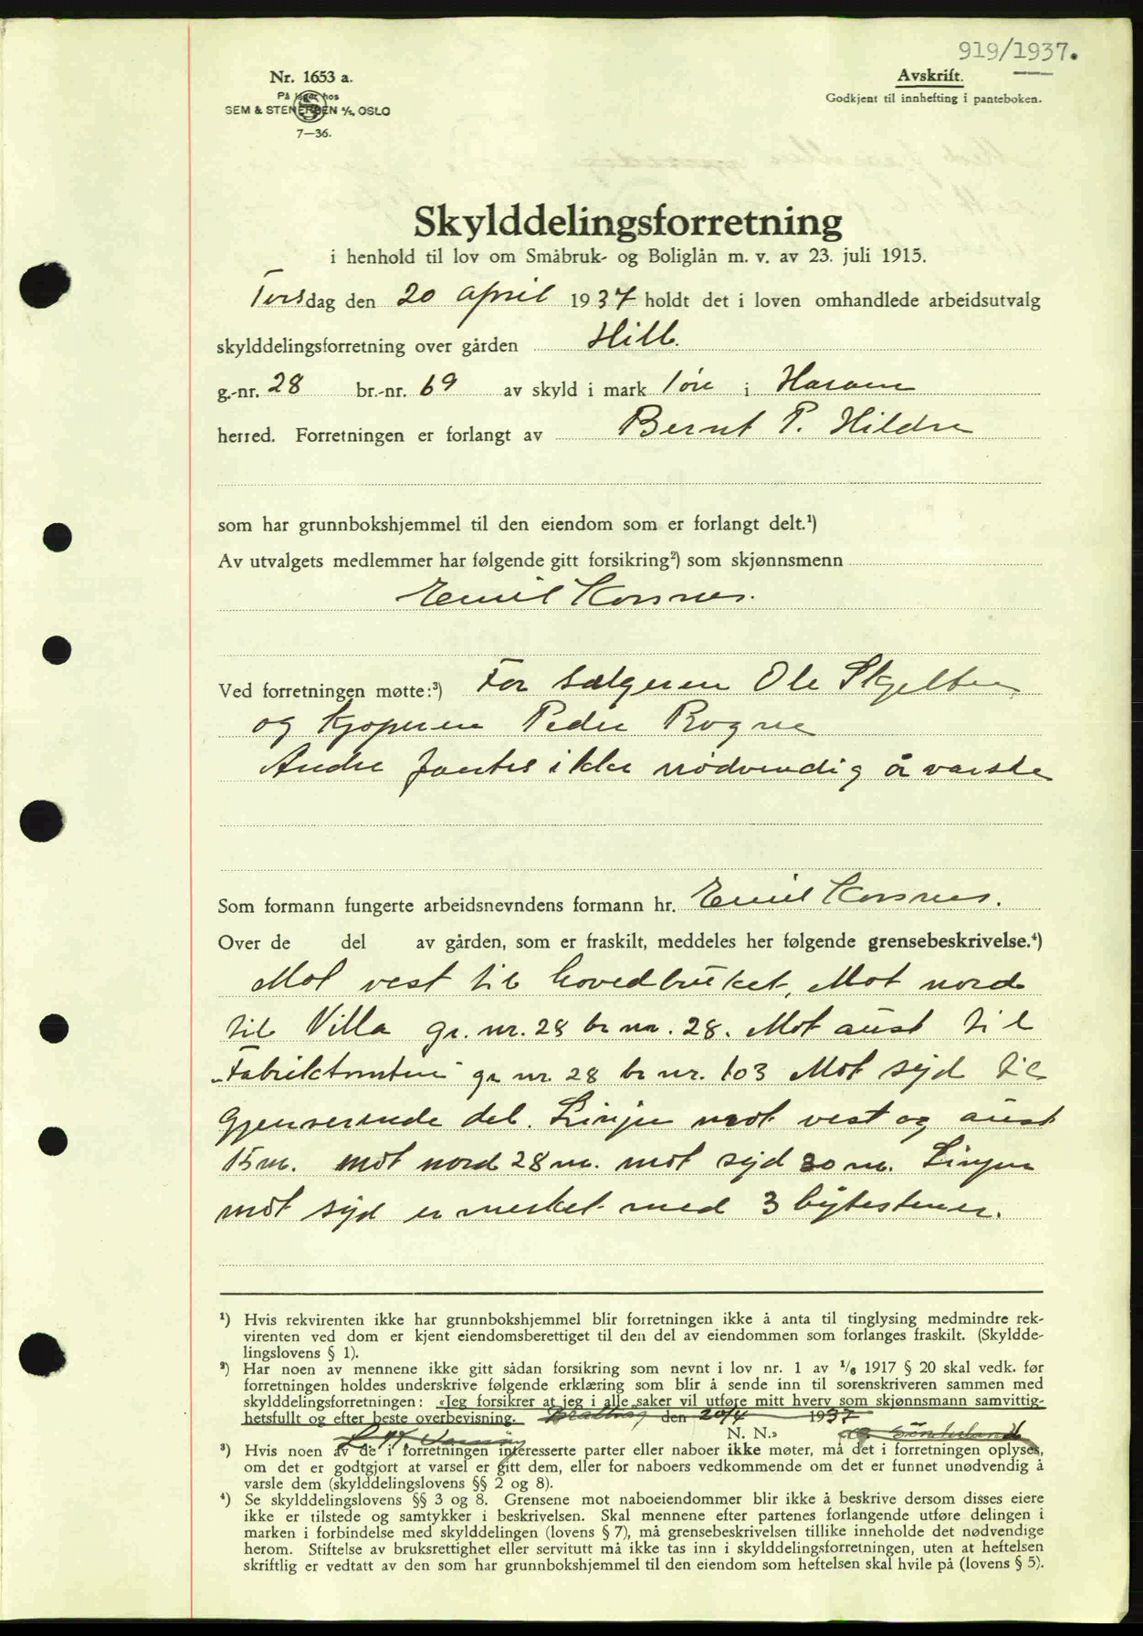 919/1937.
Nr. 1653 a.
På lager hos
SEM & STENERSEN A/S, OSLO
7—36.
Avskrift.
Godkjent til innhefting i panteboken.
Skylddelingsforretning
i henhold til lov om Småbruk- og Boliglån m. v. av 23. juli 1915.
Tirsdag den 20 april 1937 holdt det i loven omhandlede arbeidsutvalg
skylddelingsforretning over gården
g.-nr. 28 br.-nr. 69 av skyld i mark 1 øre i Haram
herred. Forretningen er forlangt av Bernt P. Hildre
som har grunnbokshjemmel til den eiendom som er forlangt delt.¹)
Av utvalgets medlemmer har følgende gitt forsikring²) som skjønnsmenn
Emil Korsnes.
Ved forretningen møtte:³) For Sælgeren Ole Skjelten
og kjøperen Peder Rogne
Andre fantes ikke nødvendig å varsle
Som formann fungerte arbeidsnevndens formann hr. Emil Korsnes.
Over de del av gården, som er fraskilt, meddeles her følgende grensebeskrivelse.⁴)
Mot vest til hovedbruket, Mot nord
til Villa gr. nr. 28 br nr. 28. Mot aust til
"Fabriktomten" gr nr. 28 br nr. 103 Mot syd til
gjenverende del. Linjen mot vest og aust
15 m. mot nord 28 m. mot syd 30 m. Linjen
mot syd er merket med 3 bytesteiner.
¹) Hvis rekvirenten ikke har grunnbokshjemmel blir forretningen ikke å anta til tinglysing medmindre rek-
virenten ved dom er kjent eiendomsberettiget til den del av eiendommen som forlanges fraskilt. (Skyldde-
lingslovens § 1).
²) Har noen av mennene ikke gitt sådan forsikring som nevnt i lov nr. 1 av 1/6 1917 § 20 skal vedk. før
forretningen holdes underskrive følgende erklæring som blir å sende inn til sorenskriveren sammen med
skylddelingsforretningen: «Jeg forsikrer at jeg i alle saker vil utføre mitt hverv som skjønnsmann samvittig-
hetsfullt og efter beste overbevisning. Brattvåg den 20/4 1937
N. N.»
³) Hvis noen av de i forretningen interesserte parter eller naboer ikke møter, må det i forretningen oplyses,
om det er godtgjort at varsel er gitt dem, eller for naboers vedkommende om det er funnet unødvendig å
varsle dem (skylddelingslovens §§ 2 og 8).
⁴) Se skylddelingslovens §§ 3 og 8. Grensene mot naboeiendommer blir ikke å beskrive dersom disses eiere
ikke er tilstede og samtykker i beskrivelsen. Skal mennene efter partenes forlangende utføre delingen i
marken i forbindelse med skylddelingen (lovens § 7), må grensebeskrivelsen tillike inneholde det nødvendige
herom. Stiftelse av bruksrettighet eller servitutt må ikke tas inn i skylddelingsforretningen, uten at heftelsen
skriftlig er vedtatt av den som har grunnbokshjemmel til den eiendom som heftelsen skal hvile på (lovens § 5).